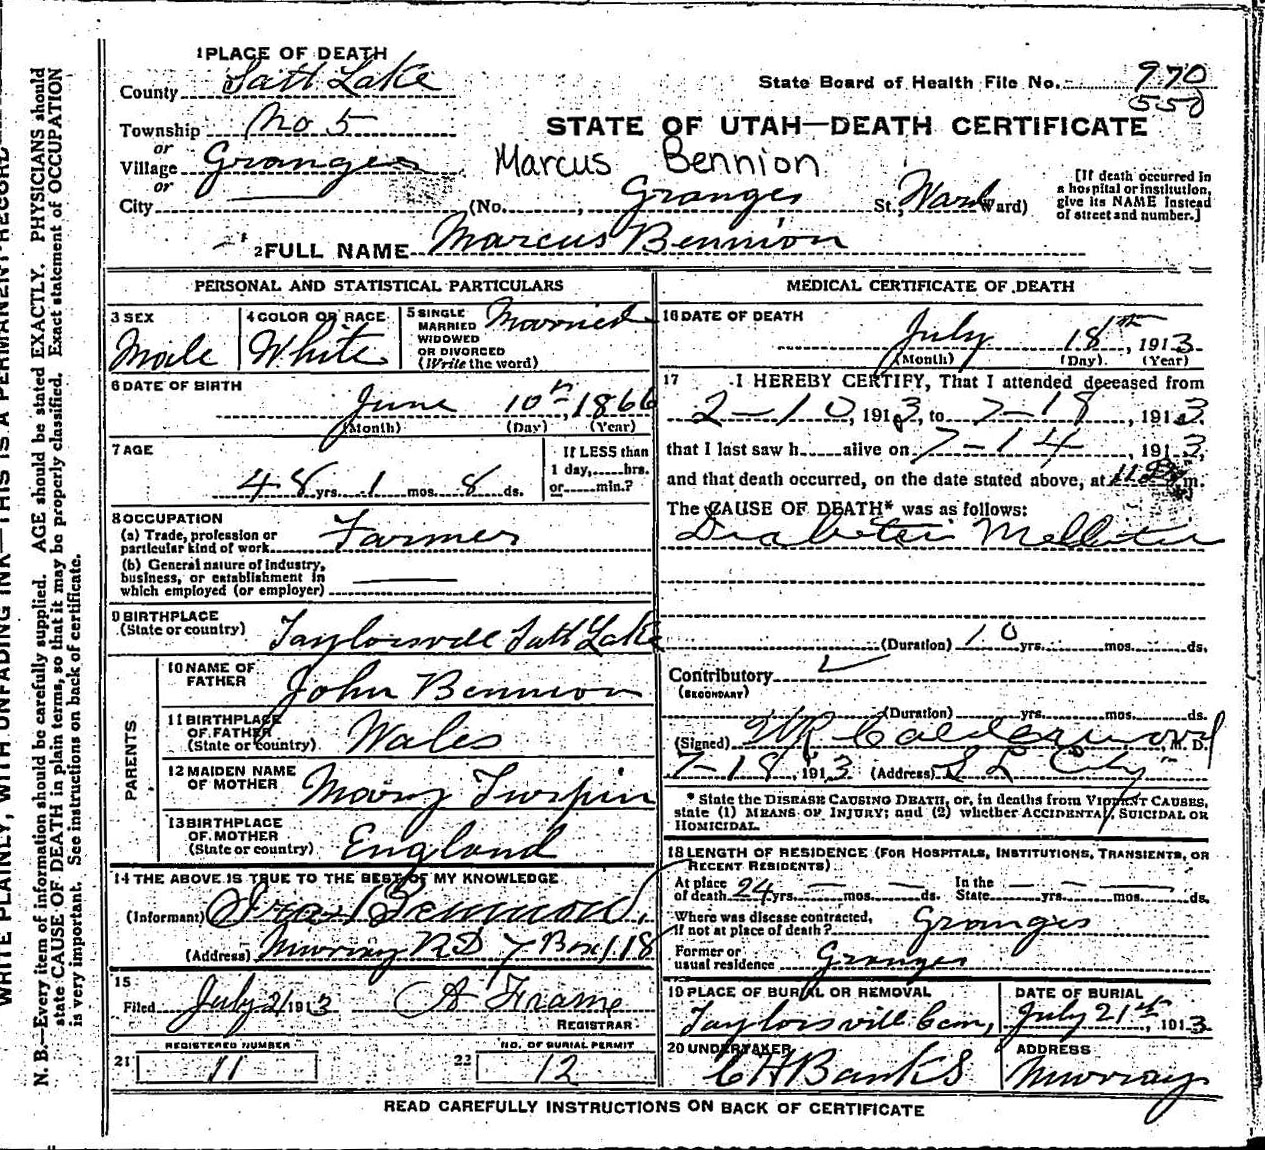 WRITE PLAINLY, WITH UNFADING INK—THIS IS A PERMANENT RECORD
N. B.—Every item of information should be carefully supplied. AGE should be stated EXACTLY. PHYSICIANS should
state CAUSE OF DEATH in plain terms, so that it may be properly classified. Exact statement of OCCUPATION
is very important. See instructions on back of certificate.
1 PLACE OF DEATH
County Salt Lake
State Board of Health File No. 970
550
Township No 5
or
STATE OF UTAH—DEATH CERTIFICATE
Village Granger
or
Marcus Bennion
[If death occurred in
a hospital or institution,
give its NAME instead
of street and number.]
City (No. , Granger St., Ward Ward)
2 FULL NAME Marcus Bennion
PERSONAL AND STATISTICAL PARTICULARS
3 SEX
Male
4 COLOR OR RACE
White
5 SINGLE
MARRIED
WIDOWED
OR DIVORCED
(Write the word)
Married
6 DATE OF BIRTH
June 10th, 1866
(Month) (Day) (Year)
7 AGE
48 yrs. 1 mos. 8 ds.
If LESS than
1 day, hrs.
or min.?
8 OCCUPATION
(a) Trade, profession or
particular kind of work Farmer
(b) General nature of industry,
business, or establishment in
which employed (or employer)
9 BIRTHPLACE
(State or country) Taylorsvill Salt Lake
PARENTS
10 NAME OF
FATHER John Bennion
11 BIRTHPLACE
OF FATHER
(State or country) Wales
12 MAIDEN NAME
OF MOTHER Mary Turpin
13 BIRTHPLACE
OF MOTHER
(State or country) England
14 THE ABOVE IS TRUE TO THE BEST OF MY KNOWLEDGE
(Informant) Ira Bennion,
(Address) Murray RD 7 Box 118
15
Filed July 21 1913 A Frame
REGISTRAR
REGISTERED NUMBER
21 11
NO. OF BURIAL PERMIT
22 12
MEDICAL CERTIFICATE OF DEATH
16 DATE OF DEATH
July 18th, 1913
(Month) (Day) (Year)
17 I HEREBY CERTIFY, That I attended deceased from
2-10, 1913, to 7-18, 1913
that I last saw h alive on 7-14, 1913,
and that death occurred, on the date stated above, at m.
The CAUSE OF DEATH* was as follows:
Diabetes Mellitus
(Duration) 10 yrs. mos. ds.
Contributory
(SECONDARY)
(Duration) yrs. mos. ds.
(Signed) Calderwood M. D.
7-18, 1913 (Address) S L City
* State the DISEASE CAUSING DEATH, or, in deaths from VIOLENT CAUSES,
state (1) MEANS OF INJURY; and (2) whether ACCIDENTAL, SUICIDAL OR
HOMICIDAL.
18 LENGTH OF RESIDENCE (FOR HOSPITALS, INSTITUTIONS, TRANSIENTS, OR
RECENT RESIDENTS)
At place
of death 24 yrs. mos. ds.
In the
State yrs. mos. ds.
Where was disease contracted,
if not at place of death? Granger
Former or
usual residence Granger
19 PLACE OF BURIAL OR REMOVAL
Taylorsvill Cem,
DATE OF BURIAL
July 21st, 1913
20 UNDERTAKER
C H Banks
ADDRESS
Murray
READ CAREFULLY INSTRUCTIONS ON BACK OF CERTIFICATE